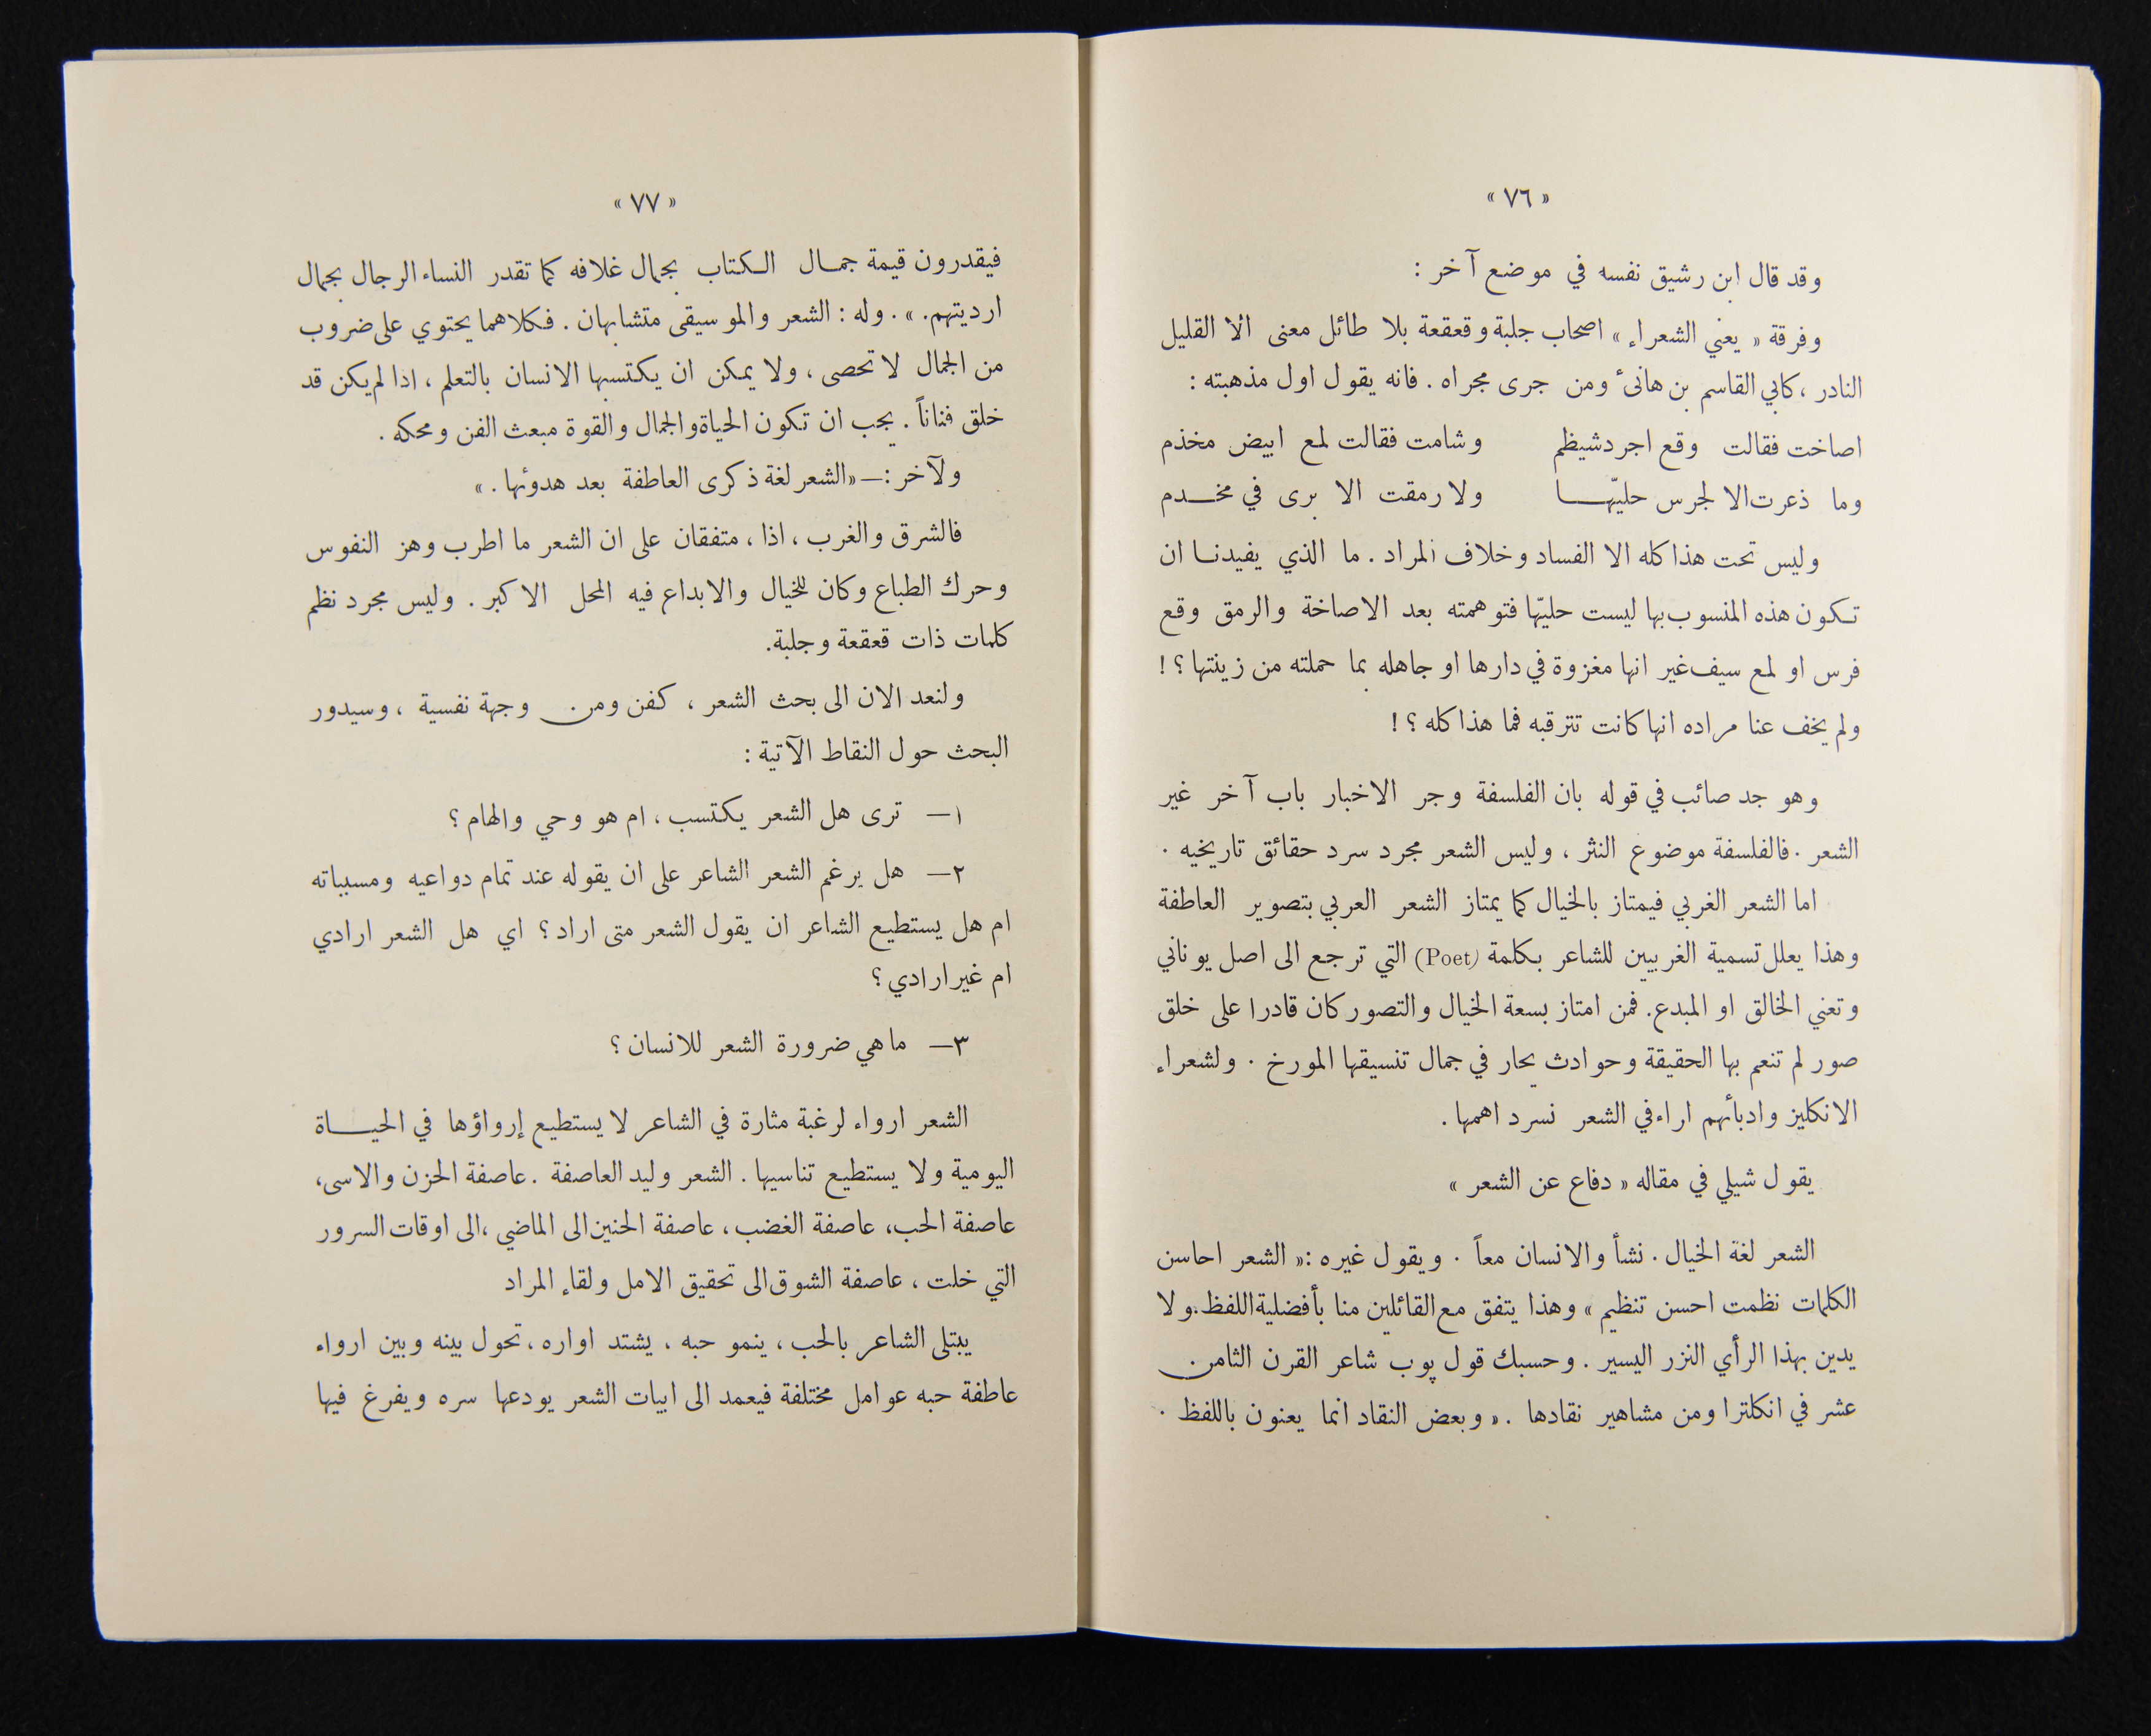 « ٧٦ »
وقد قال ابن رشيق نفسه في موضع آخر :
وفرقة « يعني الشعراء » اصحاب جلبة وقعقعة بلا طائل معنى الا القليل
النادر ، كابي القاسم بن هانىء ومن جرى مجراه . فانه يقول اول مذهبته :
اصاخت فقالت وقع اجرد شيظم وشامت فقالت لمع ابيض مخذم
وما ذعرت الا لجرس حليّها ولا رمقت الا برى في مخدم
وليس تحت هذا كله الا الفساد وخلاف المراد . ما الذي يفيدنا ان
تكون هذه المنسوب بها ليست حليّها فتوهمته بعد الاصاخة والرمق وقع
فرس او لمع سيف غير انها مغزوة في دارها او جاهله بما حملته من زينتها ؟ !
ولم يخف عنا مراده انها كانت تترقبه فما هذا كله ؟ !
وهو جد صائب في قوله بان الفلسفة وجر الاخبار باب آخر غير
الشعر . فالفلسفة موضوع النثر ، وليس الشعر مجرد سرد حقائق تاريخيه .
اما الشعر الغربي فيمتاز بالخيال كما يمتاز الشعر العربي بتصوير العاطفة
وهذا يعلل تسمية الغربيين للشاعر بكلمة (Poet) التي ترجع الى اصل يوناني
وتعني الخالق او المبدع. فمن امتاز بسعة الخيال والتصور كان قادرا على خلق
صور لم تنعم بها الحقيقة وحوادث يحار في جمال تنسيقها المورخ . ولشعراء
الانكليز وادبائهم اراء في الشعر نسرد اهمها .
يقول شيلي في مقاله « دفاع عن الشعر »
الشعر لغة الخيال . نشأ والانسان معاً . ويقول غيره :« الشعر احاسن
الكلمات نظمت احسن تنظيم » وهذا يتفق مع القائلين منا بأفضلية اللفظ. ولا
يدين بهذا الرأي النزر اليسير . وحسبك قول پوب شاعر القرن الثامن
عشر في انكلترا ومن مشاهير نقادها . « وبعض النقاد انما يعنون باللفظ .
« ٧٧ »
فيقدرون قيمة جمال الكتاب بجمال غلافه كما تقدر النساء الرجال بجمال
ارديتهم. » . وله : الشعر والموسيقى متشابهان . فكلاهما يحتوي على ضروب
من الجمال لا تحصى ، ولا يمكن ان يكتسبها الانسان بالتعلم ، اذا لم يكن قد
خلق فناناً . يجب ان تكون الحياة والجمال والقوة مبعث الفن ومحكه .
ولآخر :— «الشعر لغة ذكرى العاطفة بعد هدوئها . »
فالشرق والغرب ، اذا ، متفقان على ان الشعر ما اطرب وهز النفوس
وحرك الطباع وكان للخيال والابداع فيه المحل الاكبر . وليس مجرد نظم
كلمات ذات قعقعة وجلبة.
ولنعد الان الى بحث الشعر ، كفن ومن وجهة نفسية ، وسيدور
البحث حول النقاط الآتية :
١— ترى هل الشعر يكتسب ، ام هو وحي والهام ؟
٢— هل يرغم الشعر الشاعر على ان يقوله عند تمام دواعيه ومسبباته
ام هل يستطيع الشاعر ان يقول الشعر متى اراد ؟ اي هل الشعر ارادي
ام غير ارادي ؟
٣— ما هي ضرورة الشعر للانسان ؟
الشعر ارواء لرغبة مثارة في الشاعر لا يستطيع إرواؤها في الحياة
اليومية ولا يستطيع تناسيها . الشعر وليد العاصفة . عاصفة الحزن والاسى،
عاصفة الحب، عاصفة الغضب ، عاصفة الحنين الى الماضي ،الى اوقات السرور
التي خلت ، عاصفة الشوق الى تحقيق الامل ولقاء المراد
يبتلى الشاعر بالحب ، ينمو حبه ، يشتد اواره ، تحول بينه وبين ارواء
عاطفة حبه عوامل مختلفة فيعمد الى ابيات الشعر يودعها سره ويفرغ فيها